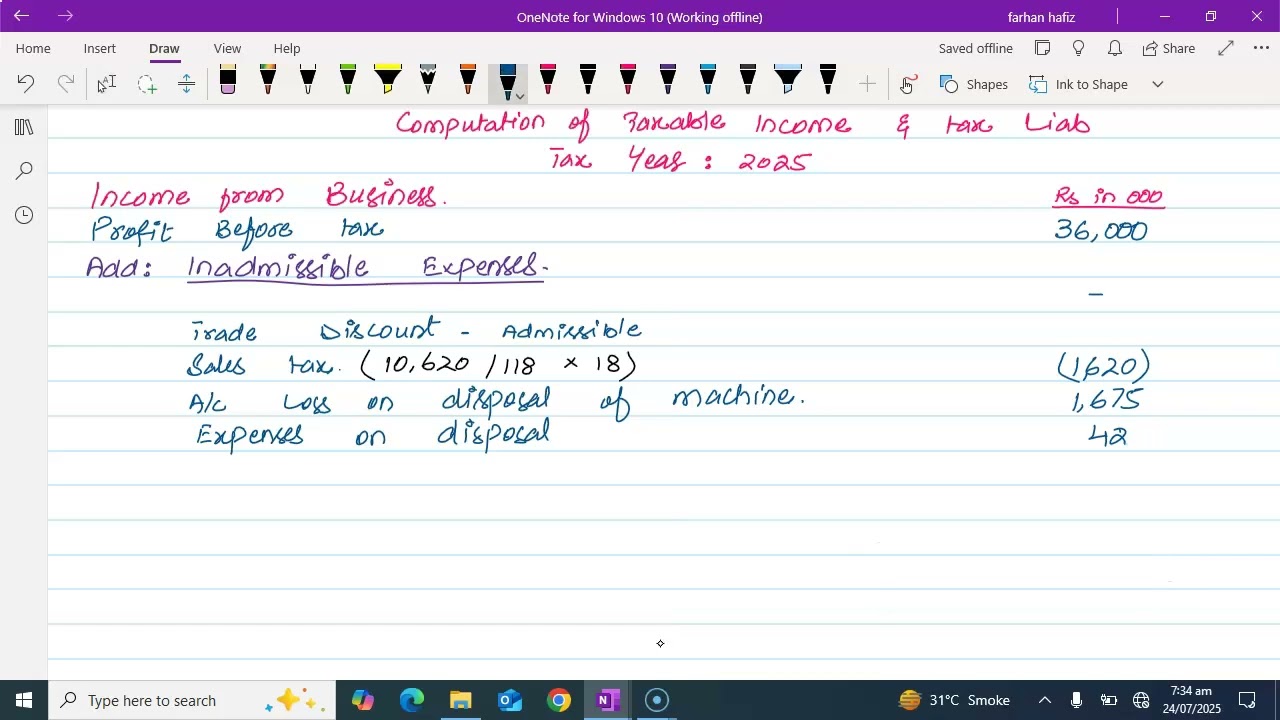 OneNote for Windows 10 (Working offline)
farhan hafiz
Home Insert Draw View Help
Saved offline
Share
Shapes
Ink to Shape
Computation of Taxable Income & tax Liab
Tax Year : 2025
Income from Business.
Rs in 000
Profit Before tax
36,000
Add: Inadmissible Expenses.
–
Trade Discount - Admissible
Sales tax. (10,620 / 118 × 18)
(1620)
A/c Loss on disposal of machine.
1,675
Expenses on disposal
42
Type here to search
31°C Smoke
7:34 am
24/07/2025